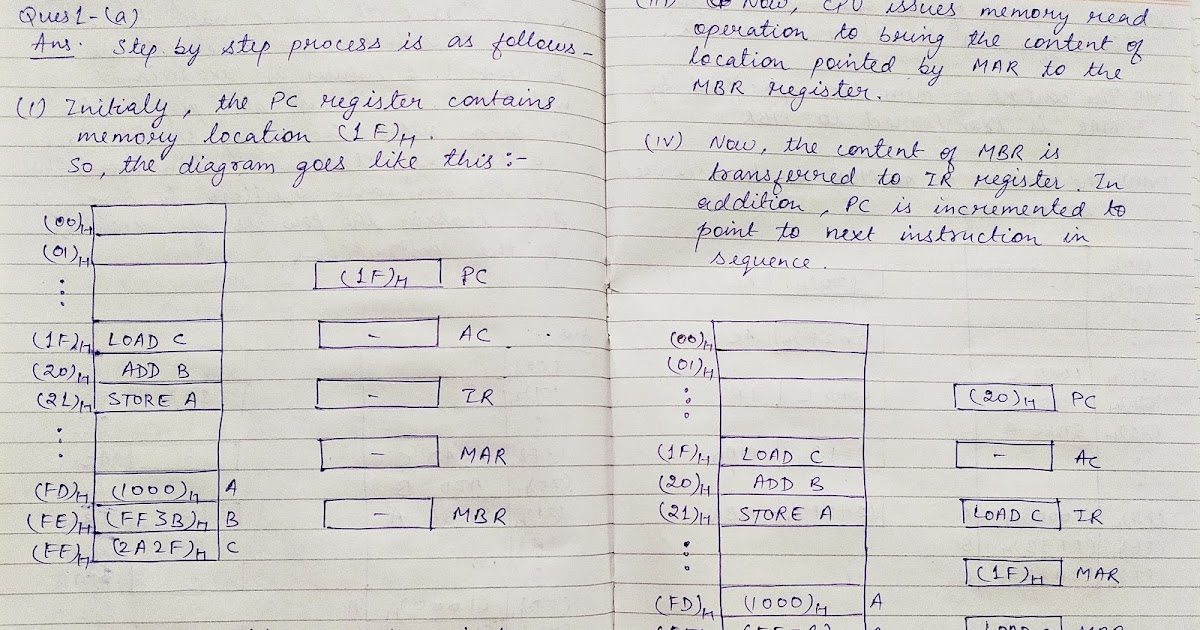 Ques 1-(a)
Ans. Step by step process is as follows-
(1) Initialy, the PC register contains
memory location (1F)H.
So, the diagram goes like this :-
(00)H
(01)H
(1F)H PC
(1F)H LOAD C - AC
(20)H ADD B
(21)H STORE A - IR
- MAR
(FD)H (1000)H A
(FE)H (FF3B)H B - MBR
(FF)H (2A2F)H C
Now, CPU issues memory read
operation to bring the content of
location pointed by MAR to the
MBR register.
(iv) Now, the content of MBR is
transferred to IR register. In
addition, PC is incremented to
point to next instruction in
sequence.
(00)H
(01)H
(20)H PC
(1F)H LOAD C - AC
(20)H ADD B
(21)H STORE A LOAD C IR
(1F)H MAR
(FD)H (1000)H A